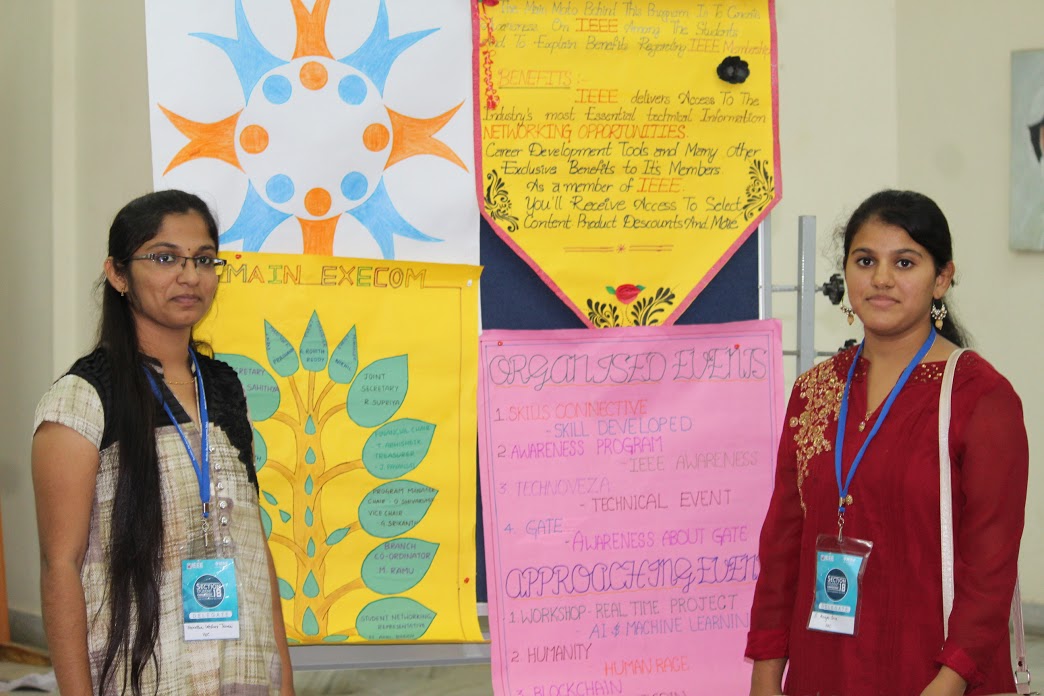 The Main Moto Behind This Program Is To Create
Awareness On IEEE Among The Students
And To Explain Benefits Regarding IEEE Membership
BENEFITS :-
IEEE delivers Access To The
Industry's most Essential technical Information
NETWORKING OPPORTUNITIES.
Career Development Tools and Many other
Exclusive Benefits to It's Members.
As a member of IEEE.
You'll Receive Access To Select
Content Product Discounts And More
MAIN EXECOM
JOINT
SECRETARY
R. SUPRIYA
FINANCIAL CHAIR
T. ABHISHEK
TREASURER
PROGRAM MANAGER
CHAIR -
VICE CHAIR
G. SRIKANTH
BRANCH
CO-ORDINATOR
M. RAMU
STUDENT NETWORKING
REPRESENTATIVE
ORGANISED EVENTS
1. SKILLS CONNECTIVE
- SKILL DEVELOPED
2 AWARENESS PROGRAM
- IEEE AWARENESS
3 TECHNOVEZA
- TECHNICAL EVENT
4. GATE
- AWARENESS ABOUT GATE
APPROACHING EVEN
1. WORKSHOP - REAL TIME PROJECT
- AI & MACHINE LEARNIN
2 HUMANITY
- HUMAN RACE
3 BLOCKCHAIN
SECTION
18
DELEGATE
SECTION
18
DELEGATE